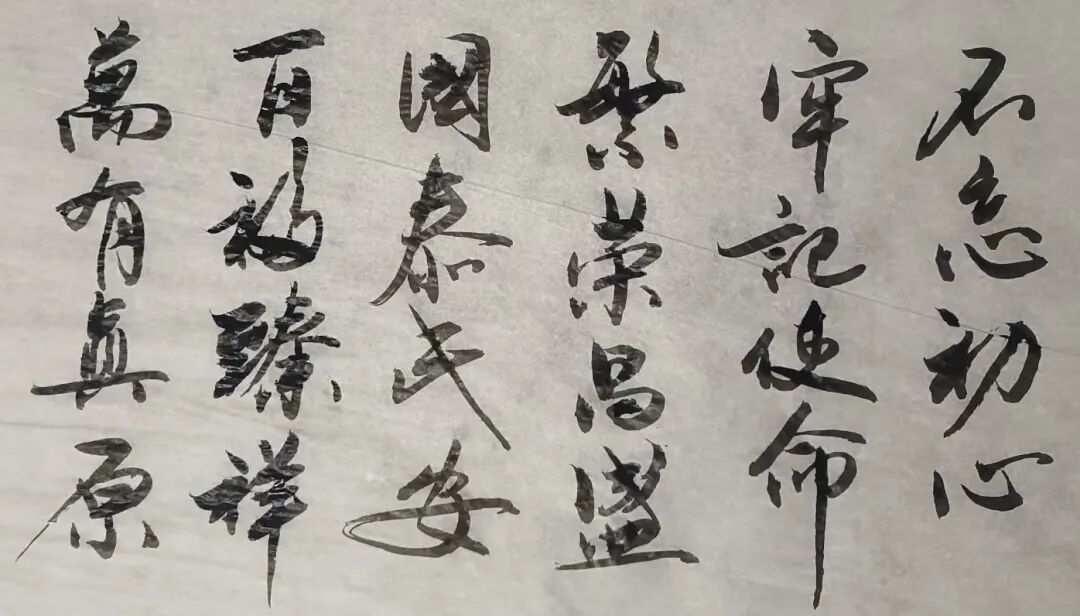 不忘初心
牢记使命
繁荣昌盛
國泰民安
百福臻祥
萬有真原